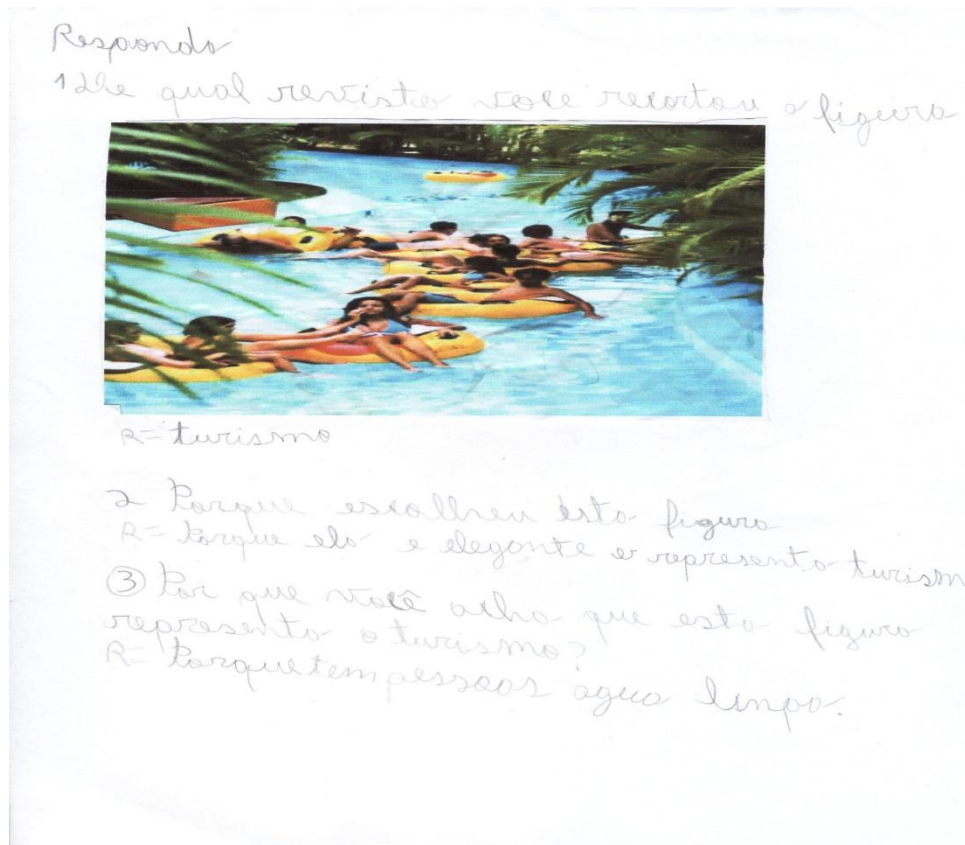 Responda
1 De qual revista voce recortou a figura
R= turismo
2 Porque escolheu esta figura
R= Porque ela e elegante e representa turism
③ Por que você acha que esta figura
representa o turismo?
R= Porque tem pessoas agua linpa.